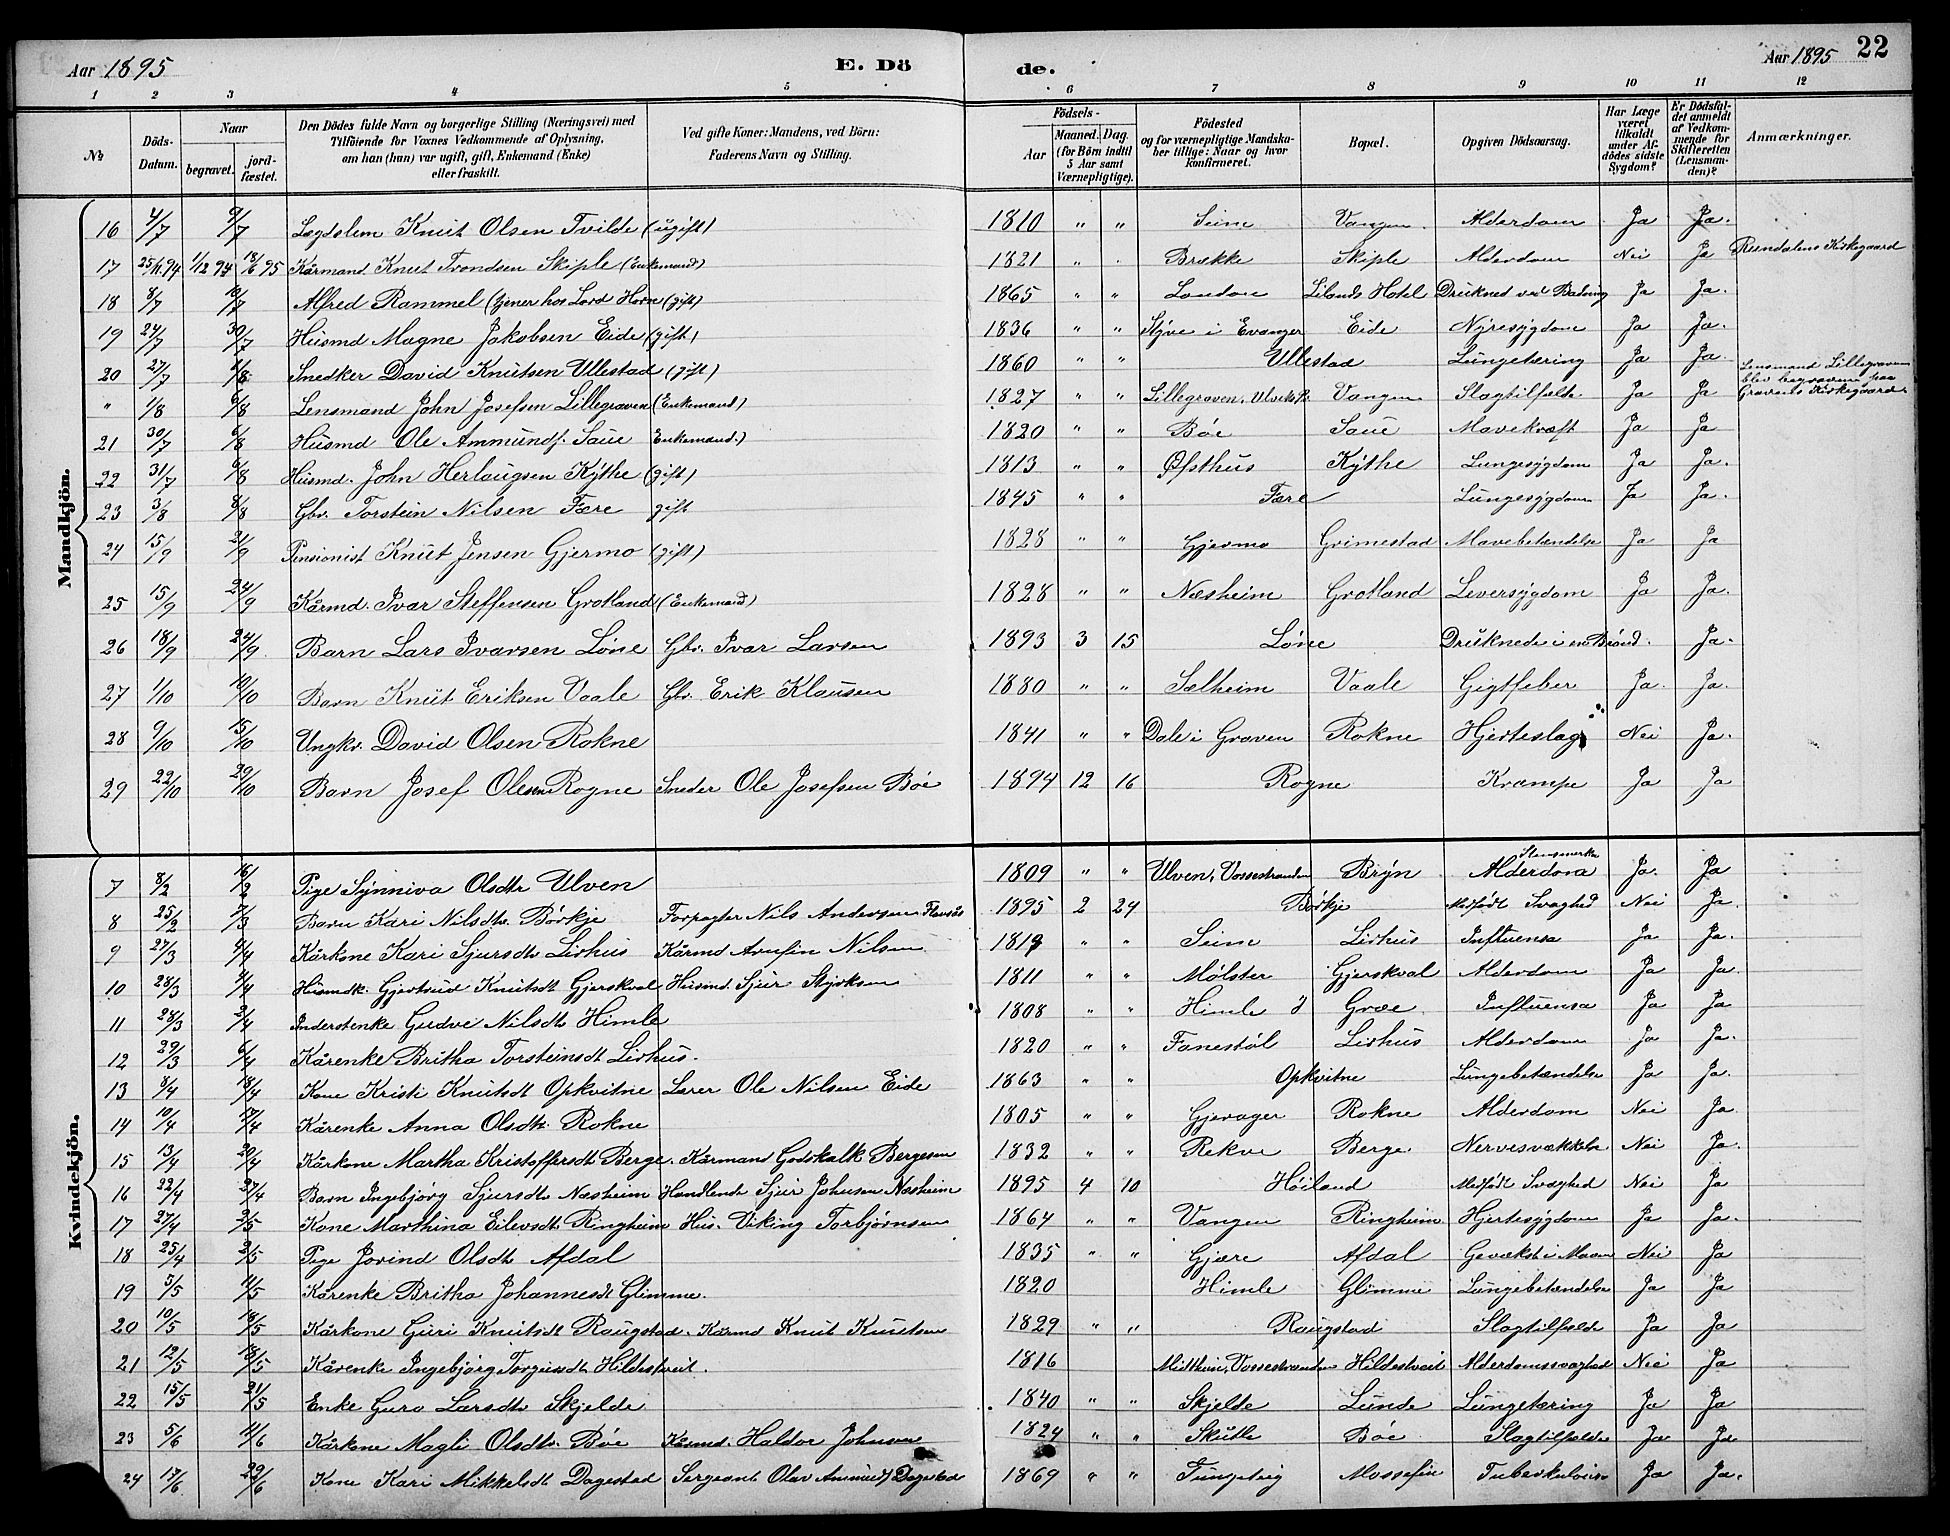 Aar 1895 E. Dö de. Aar 1895 22
1 2 3 4 5 6 7 8 9 10 11 12
№ Döds-Datum. Naar begravet. jord-fæstet. Den Dödes fulde Navn og borgerlige Stilling (Næringsvei) med Tilföiende for Voxnes Vedkommende af Oplysning, om han (hun) var ugift, gift, Enkemand (Enke) eller fraskilt. Ved gifte Koner: Mandens, ved Börn: Faderens Navn og Stilling. Födsels- Aar Maaned. Dag. (for Börn indtil 5 Aar samt Værnepligtige). Födested og for værnepligtige Mandska-ber tillige: Naar og hvor konfirmeret. Bopæl. Opgiven Dödsaarsag. Har Læge været tilkaldt under Af-dödes sidste Sygdom? Er Dödsfal-det anmeldt af Vedkom-mende for Skifteretten (Lensman-den)? Anmærkninger.
Mandkjön.
16 4/7 9/7 Lægdslem Knut Olsen Tvilde (ugift) 1810 " " Seim Vangen Alderdom Ja Ja.
17 25/11 94 1/12 94 18/6 95 Kårmand Knut Trondsen Skiple (Enkemand) 1821 " " Brekke Skiple Alderdom Nei Ja Rundalens Kirkegaard
18 8/7 10/7 Alfred Rammel (tjener hos Lord Horn (gift) 1865 " " London Lilands Hotel Druknet ved Badning Ja Ja.
19 24/7 30/7 Husmd Magne Jakobsen Eide (gift) 1836 " " Styve i Evanger Eide Nyresygdom Ja Ja.
20 27/7 1/8 Snedker David Knutsen Ullestad (gift) 1860 " " Ullestad Lungetæring Ja Ja.
" 1/8 6/8 Lensmand John Josefsen Lillegraven (Enkemand) 1827 " " Lillegraven, Ulvik Vangen Slagtilfælde Ja Ja Lensmand Lillegraven blev begraven paa Gravens Kirkegaard
21 30/7 6/8 Husmd Ole Ammunds. Saue Enkemand.) 1820 " " Bøe Saue Mavekræft Ja Ja
22 31/7 6/8 Husmd. John Herlaugsen Kythe (gift) 1813 " " Øfsthus Kythe Lungesygdom Ja Ja.
23 3/8 8/8 Gbr. Torstein Nilsen Fære gift 1845 " " Fære Lungesygdom Ja Ja.
24 15/9 21/9 Pensionist Knut Jensen Gjermo (gift) 1828 " " Gjermo Grimestad Mavebetændelse Ja Ja
25 15/9 24/9 Kårmd. Ivar Steffensen Grotland (Enkemand) 1828 " " Næsheim Grotland Leversygdom Ja Ja.
26 18/9 24/9 Barn Lars Ivarsen Løne Gbr. Ivar Larsen 1893 3 15 Løne Druknede i en Brønd. Ja.
27 1/10 10/10 Barn Knut Eriksen Vaale Gbr. Erik Klausen 1880 " " Sælheim Vaale Gigtfeber Ja. Ja.
28 9/10 15/10 Ungkr. David Olsen Rokne 1841 " " Dale i Graven Rokne Hjerteslag Nei Ja.
29 22/10 29/10 Barn Josef Olesen Rogne Sneder Ole Josefsen Bøe 1894 12 16 Rogne Krampe Ja Ja
Kvindekjön.
7 8/2 16/2 Pige Synniva Olsdtr Ulven 1809 " " Ulven, Vossestranden Bryn Alderdom Ja. Ja
8 25/2 7/3 Barn Kari Nilsdtr. Børkje Forpagter Nils Andersen 1895 2 24 Børkje Medfødt Svaghed Nei Ja.
9 27/3 4/4 Kårkone Kari Sjursdtr Lirhus Kårmd Arnfin Nilsen 1819 " " Seim Lirhus Influensa Ja Ja.
10 28/3 4/4 Husmdk. Gjertrud Knutsdt Gjerskval Husmd. Sjur Styrksen 1811 " " Mølster Gjerskval Alderdom Ja Ja.
11 28/3 2/4 Inderstenke Gudve Nilsdtr Himle 1808 " " Himle Græe Influensa Ja Ja
12 29/3 6/4 Kårenke Britha Torsteinsdt Lirhus. 1820 " " Fanestøl Lirhus Alderdom Ja Ja.
13 8/4 18/4 Kone Kristi Knutsdt Opkvitne Lærer Ole Nilsen Eide 1863 " " Opkvitne Lungebetændelse Ja Ja.
14 10/4 17/4 Kårenke Anna Olsdtr. Rokne 1805 " " Gjerager Rokne Alderdom Nei Ja
15 13/4 20/4 Kårkone Martha Kristoffersdt Berge. Kårmand Godskalk Bergesen 1832 " " Rekve Berge Nervesvækkelse Nei Ja.
16 22/4 27/4 Barn Ingebjørg Sjursdtr Næsheim Handlende Sjur Johnsen Næsheim 1895 4 10 Høiland Medfødt Svaghed Nei Ja
17 27/4 2/5 Kone Marthina Eilevsdtr Ringheim Hus. Viking Torbjørnsen 1864 " " Vangen Ringheim Hjertesygdom Ja Ja.
18 25/4 2/5 Pige Jorind Olsdtr Afdal 1835 " " Gjære Afdal Gevækst i Maven Nei Ja
19 5/5 11/5 Kårenke Britha Johannesdt Glimme. 1820 Himle Glimme Lungebetændelse Ja Ja
20 10/5 18/5 Kårkone Guri Knutsdt Raugstad. Kårmd Knut Knutsen 1829 " " Raugstad Slagtilfælde Ja Ja
21 12/5 18/5 Kårenke Ingebjørg Torgiersdt Hildestveit. 1816 Midthun, Vossestranden Hildestveit Alderdomssvaghed Nei Ja
22 15/5 21/5 Enke Guro Larsdtr Skjelde 1840 " " Skjelde Lunde Lungetæring Ja Ja
23 5/6 11/6 Kårkone Magli Olsdtr. Bøe Kårmd. Haldor Johnsen 1824 " " Skutle Bøe Slagtilfælde Ja Ja
24 17/6 22/6 Kone Kari Mikkelsdt Dagestad Sergeant Olav Ammunds Dagestad 1869 " " Tungeteig Mossefin Tuberkulose Ja Ja.